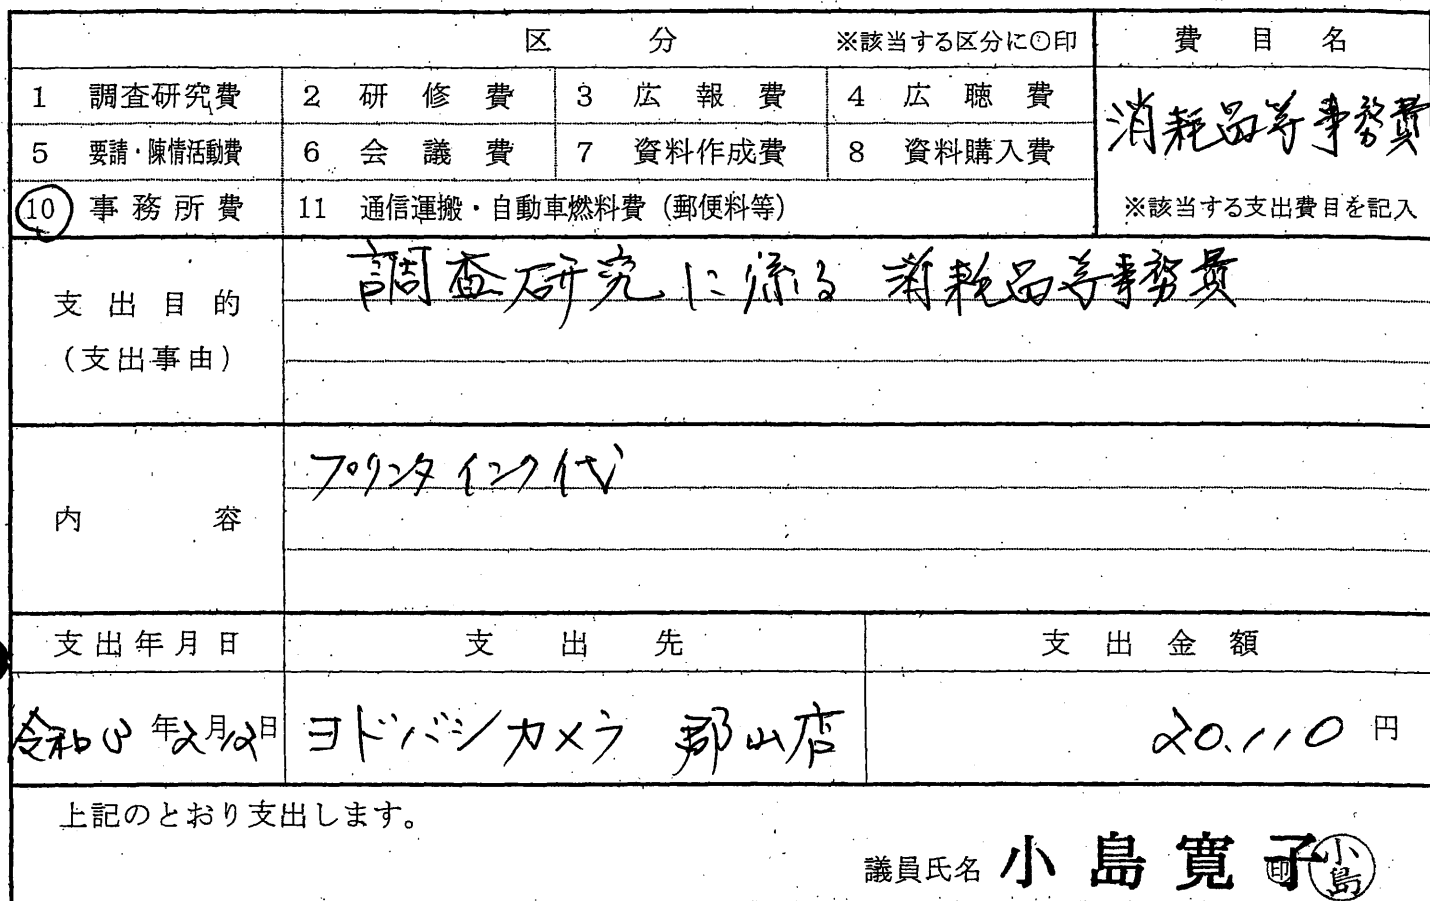 区 分 ※該当する区分に○印 費 目 名
1 調査研究費 2 研 修 費 3 広 報 費 4 広 聴 費
消耗品等事務費
5 要請・陳情活動費 6 会 議 費 7 資料作成費 8 資料購入費
10 事 務 所 費 11 通信運搬・自動車燃料費（郵便料等） ※該当する支出費目を記入
調査研究に係る 消耗品等事務費
支 出 目 的
（支出事由）
プリンタインク代
内 容
支 出 年 月 日 支 出 先 支 出 金 額
令和3年2月12日 ヨドバシカメラ 郡山店 20.110 円
上記のとおり支出します。
議員氏名 小 島 寛 子 印 小島